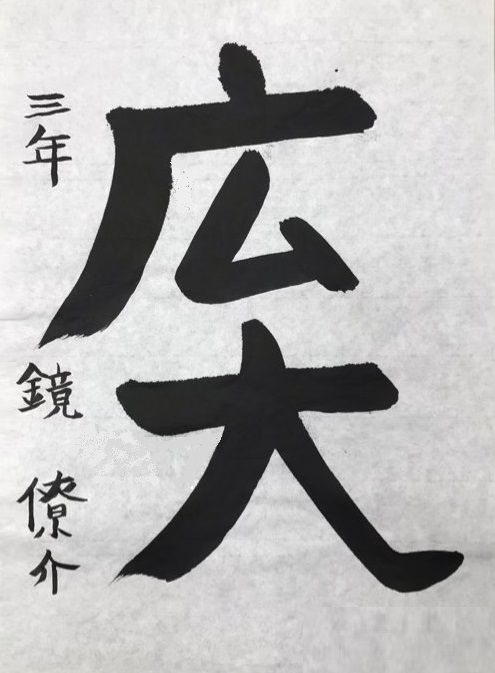 広大
三年
鏡 僚介